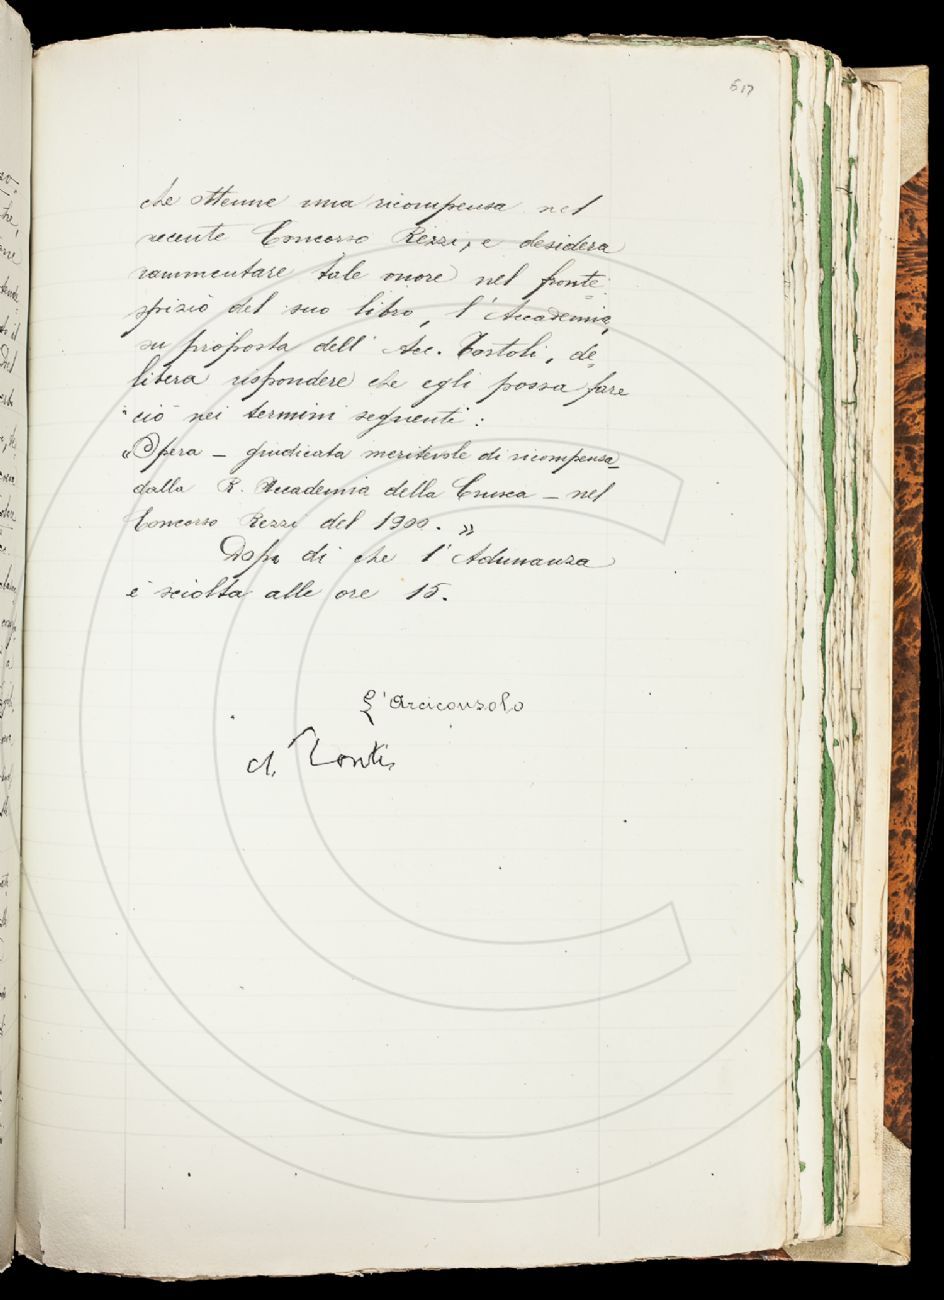 617
che ottenne una ricompensa nel
recente Concorso Rezzi, e desidera
rammentare tale onore nel fronte-
spizio del suo libro, l'Accademia,
su proposta dell' Acc. Tortoli, de-
libera rispondere che egli possa fare
ciò nei termini seguenti:
"Opera – giudicata meritevole di ricompensa
dalla R. Accademia della Crusca – nel
Concorso Rezzi del 1900. »
Dopo di che l'Adunanza
è sciolta alle ore 15.
L'Arciconsolo